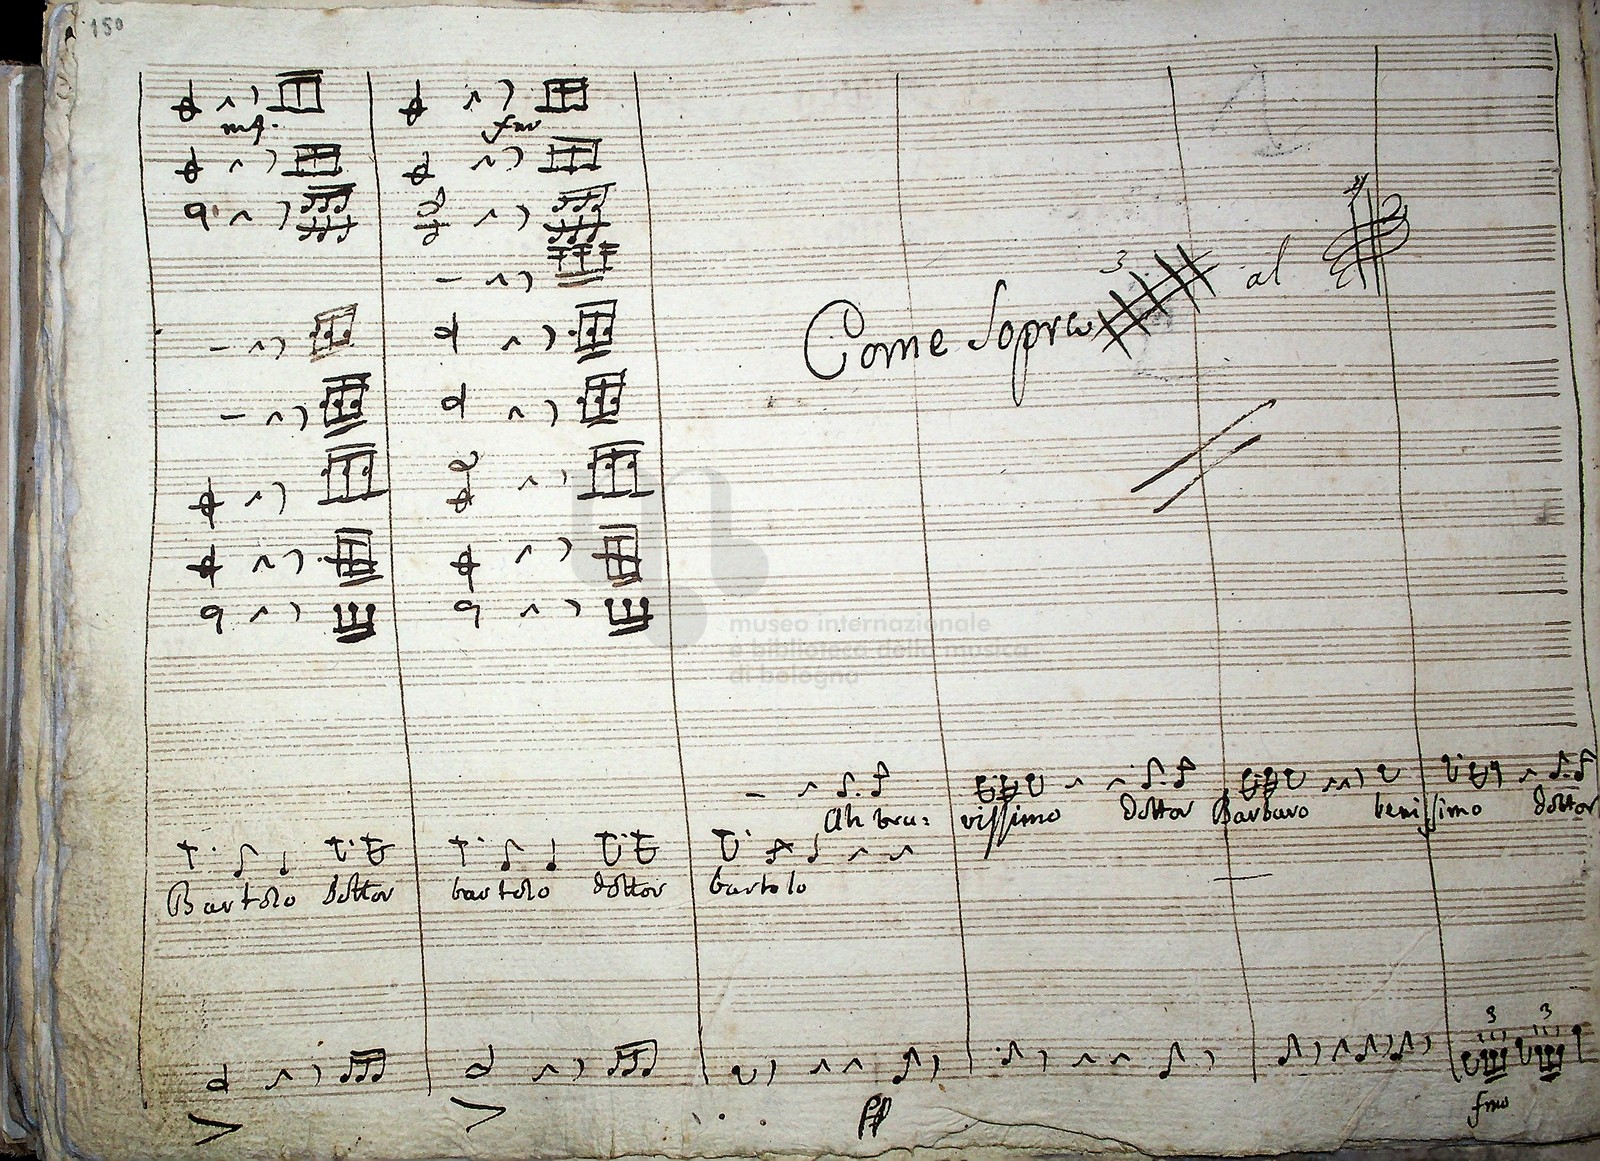 150
mf.
fmo
3
Come Sopra al
museo internazionale
e biblioteca della musica
di bologna
Ah bra: vissimo dottor Barbaro benissimo dottor
Bartolo dottor bartolo dottor bartolo
3 3
ff
fmo